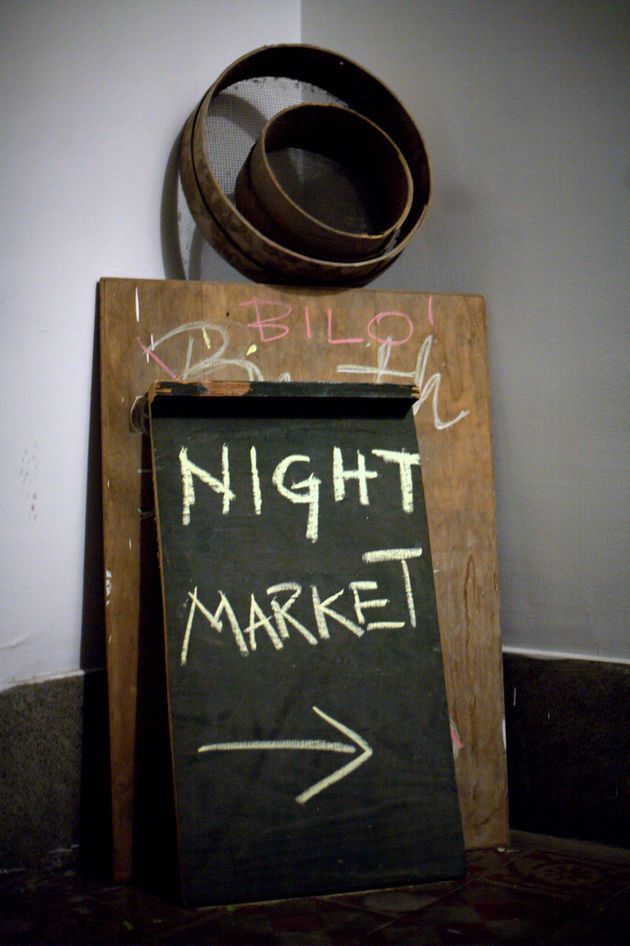 BILQ!
NIGHT
MARKET